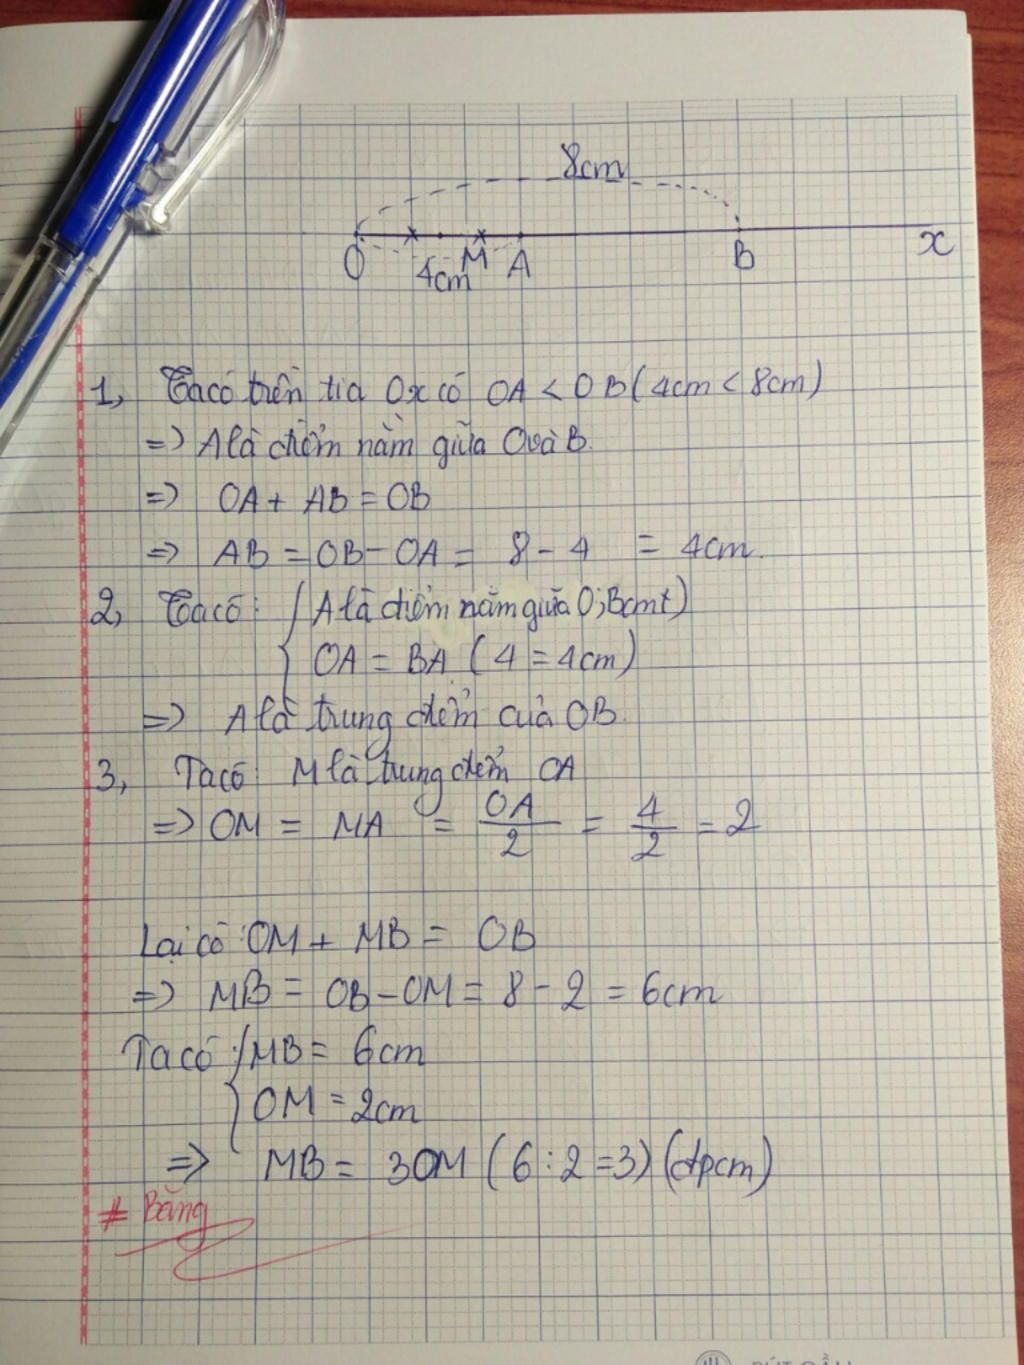 8cm
O M A B x
4cm
1, Ta có trên tia Ox có OA < OB (4cm < 8cm)
=> A là điểm nằm giữa O và B.
=> OA + AB = OB
=> AB = OB - OA = 8 - 4 = 4cm.
2, Ta có: { A là điểm nằm giữa O;B cmt)
OA = BA ( 4 = 4cm)
=> A là trung điểm của OB.
3, Ta có: M là trung điểm OA
=> OM = MA = OA/2 = 4/2 = 2
Lại có: OM + MB = OB
=> MB = OB - OM = 8 - 2 = 6cm
Ta có: { MB = 6cm
OM = 2cm
=> MB = 3OM (6 : 2 = 3) (đpcm)
# Băng